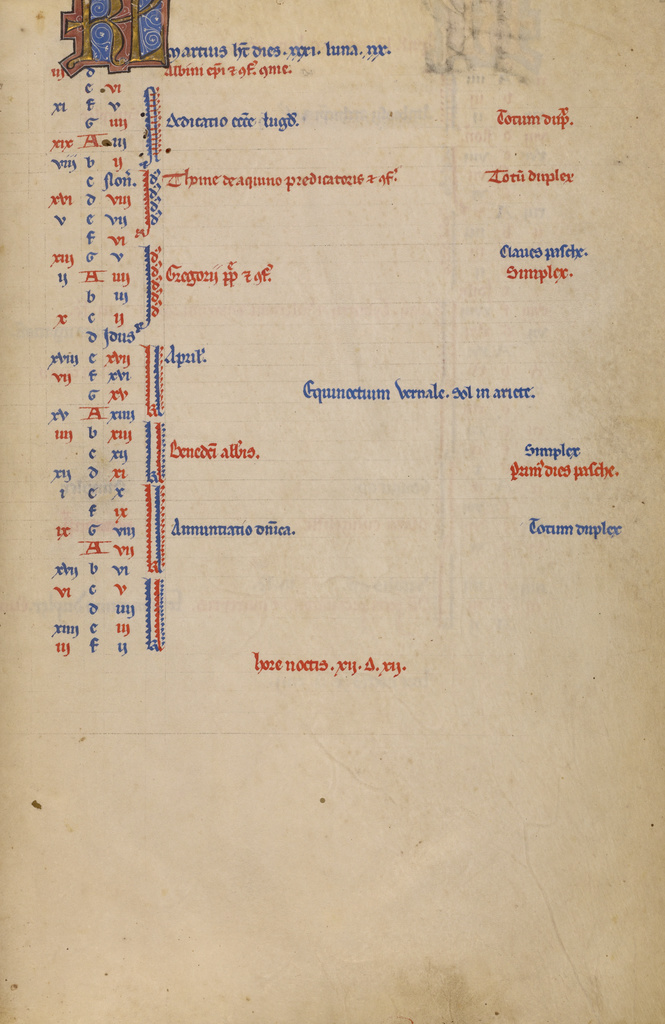 KL martius ht dies. xxxi. luna. xxx.
iii d Albini epi z gf. qme.
e vi
xi f v
G iiii Dedicatio ecce lugd. Totum dup.
xix A iii
viii b ii
c Non.
xvi d viii Thome de aquino predicatoris z gf. Totū duplex
v e vii
f vi
xiii G v Claues pasche.
ii A iiii Gregorii pp z gf. Simplex.
b iii
x c ii
d Idus
xviii e xvii April.
vii f xvi
G xv Equinoctium vernale. Sol in ariete.
xv A xiiii
iiii b xiii
c xii Benedci abbis. Simplex
xii d xi Prim dies pasche.
i e x
f ix
ix G viii Annuntiatio dnica. Totum duplex
A vii
xvii b vi
vi c v
d iiii
xiiii e iii
iii f ii
hore noctis. xii. d. xii.